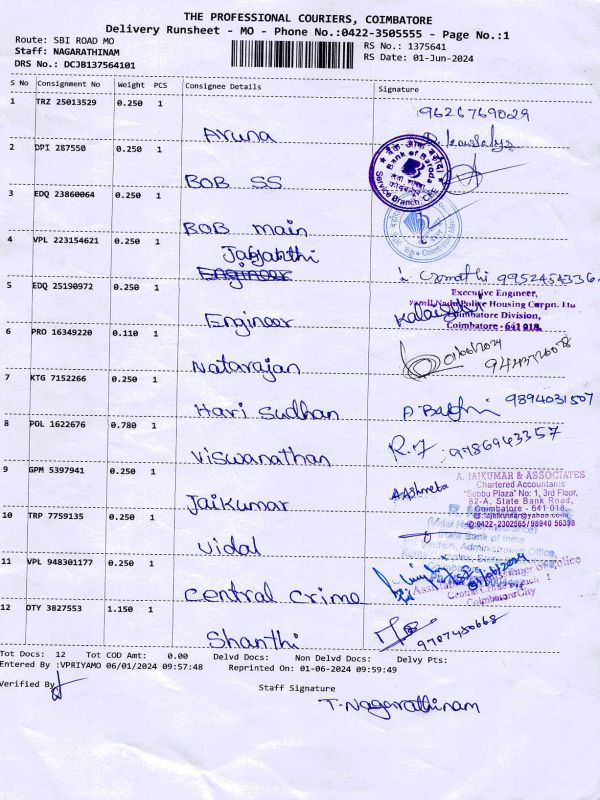 THE PROFESSIONAL COURIERS, COIMBATORE
Delivery Runsheet - MO - Phone No.:0422-3505555 - Page No.:1
Route: SBI ROAD MO
RS No.: 1375641
Staff: NAGARATHINAM
RS Date: 01-Jun-2024
DRS No.: DCJB137564101
S No Consignment No Weight PCS Consignee Details Signature
1 TRZ 25013529 0.250 1
9626769029
Aruna
2 DPI 287550 0.250 1
बैंक ऑफ बड़ौदा
Bank of Baroda
Service Branch, CBE
BOB SS
3 EDQ 23860064 0.250 1
BOB main
4 VPL 223154621 0.250 1
Engineer
9952454336
5 EDQ 25190972 0.250 1
Executive Engineer,
Tamil Nadu Police Housing Corpn. Ltd
Coimbatore Division,
Coimbatore - 641 018.
Engineer
6 PRO 16349220 0.110 1
Natarajan
7 KTG 7152266 0.250 1
Hari Sudhan
9894031507
8 POL 1622676 0.780 1
Viswanathan
9786943357
9 GPM 5397941 0.250 1
A. JAIKUMAR & ASSOCIATES
Chartered Accountants
"Subbu Plaza" No: 1, 3rd Floor,
82-A, State Bank Road,
Coimbatore - 641 018.
0422-2302565/98940 56398
Jaikumar
10 TRP 7759135 0.250 1
State Bank of India
Administrative Office,
Vidal
11 VPL 948301177 0.250 1
Assistant Commissioner of Police
Central Crime Branch
Coimbatore City
Central Crime
12 OTY 3827553 1.150 1
9787450668
Shanthi
Tot Docs: 12 Tot COD Amt: 0.00 Delvd Docs: Non Delvd Docs: Delvy Pts:
Entered By :VPRIYAMO 06/01/2024 09:57:48 Reprinted On: 01-06-2024 09:59:49
Verified By
Staff Signature
T. Nagarathinam